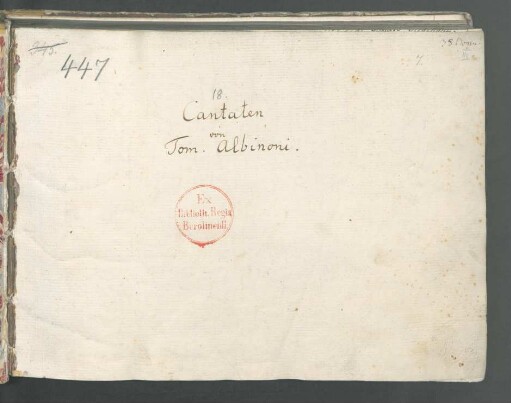 447
18.
Cantaten
von
Tom. Albinoni.
Ex
Biblioth. Regia
Berolinensi.